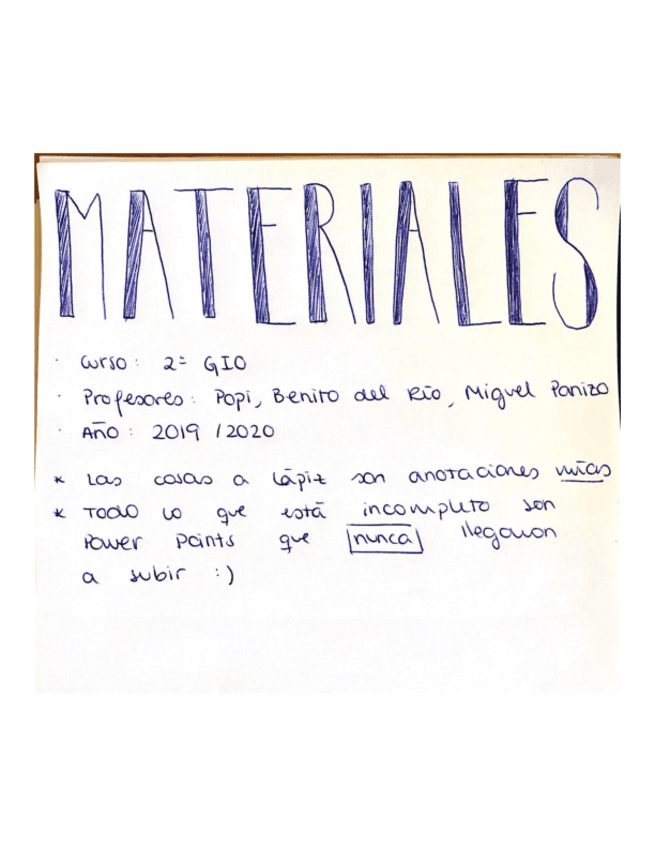 MATERIALES
· Curso: 2º GIO
· Profesores: Popi, Benito del Río, Miguel Panizo
· Año: 2019 / 2020
* Las cosas a lápiz son anotaciones mías
* Todo lo que está incompleto son
Power Points que nunca llegaron
a subir :)